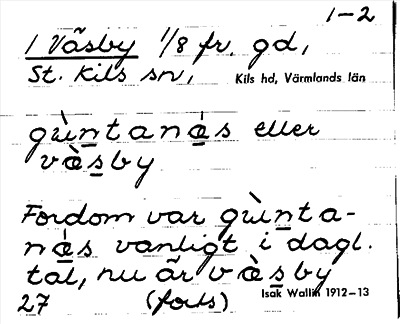 1-2
1 Väsby 1/8 fr. gd,
St. Kils sn, Kils hd, Värmlands län
gùi̱ntanæ̱̀s eller
væ̀s̱by
Fordom var gùi̱nta-
næ̱̀s vanligt i dagl.
tal, nu är væ̀s̱by
27 (forts) Isak Wallin 1912-13